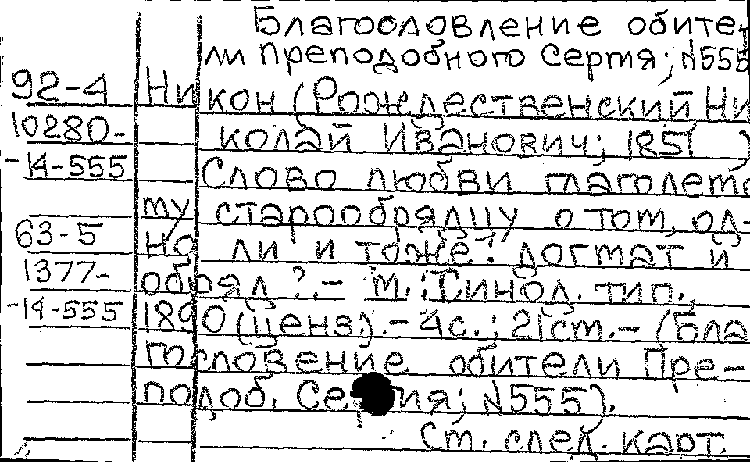 Благословление обите-
ли Преподобного Сергия; N555
92-4 Никон (Рождественский Ни
10280- колай Иванович; 1851 )
-14-555 Слово любви глаголемо
му старообрядцу о том, од-
63-5 но ли и тоже? догмат и
1377- обряд?.- М.: Синод. тип.,
-14-555 1890 (ценз.).- 4с.; 21см.- (Бла
гословение обители Пре-
подоб. Сергия; N555).
Ст. след. карт.